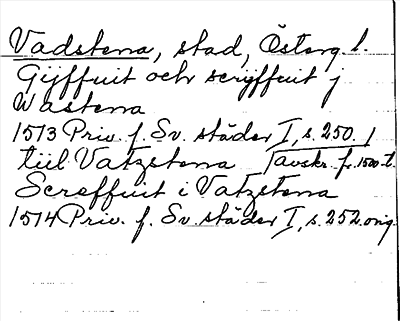 Vadstena, stad, Österg. l.
Gijffuit och scrijffuit j
Wastena
1513 Priv. f. Sv. städer I, s. 250. /
tiil Vatzstena [avskr. fr. 1500-t.
Screffuit i Vatzstena
1514 Priv. f. Sv. städer I, s. 252 orig.